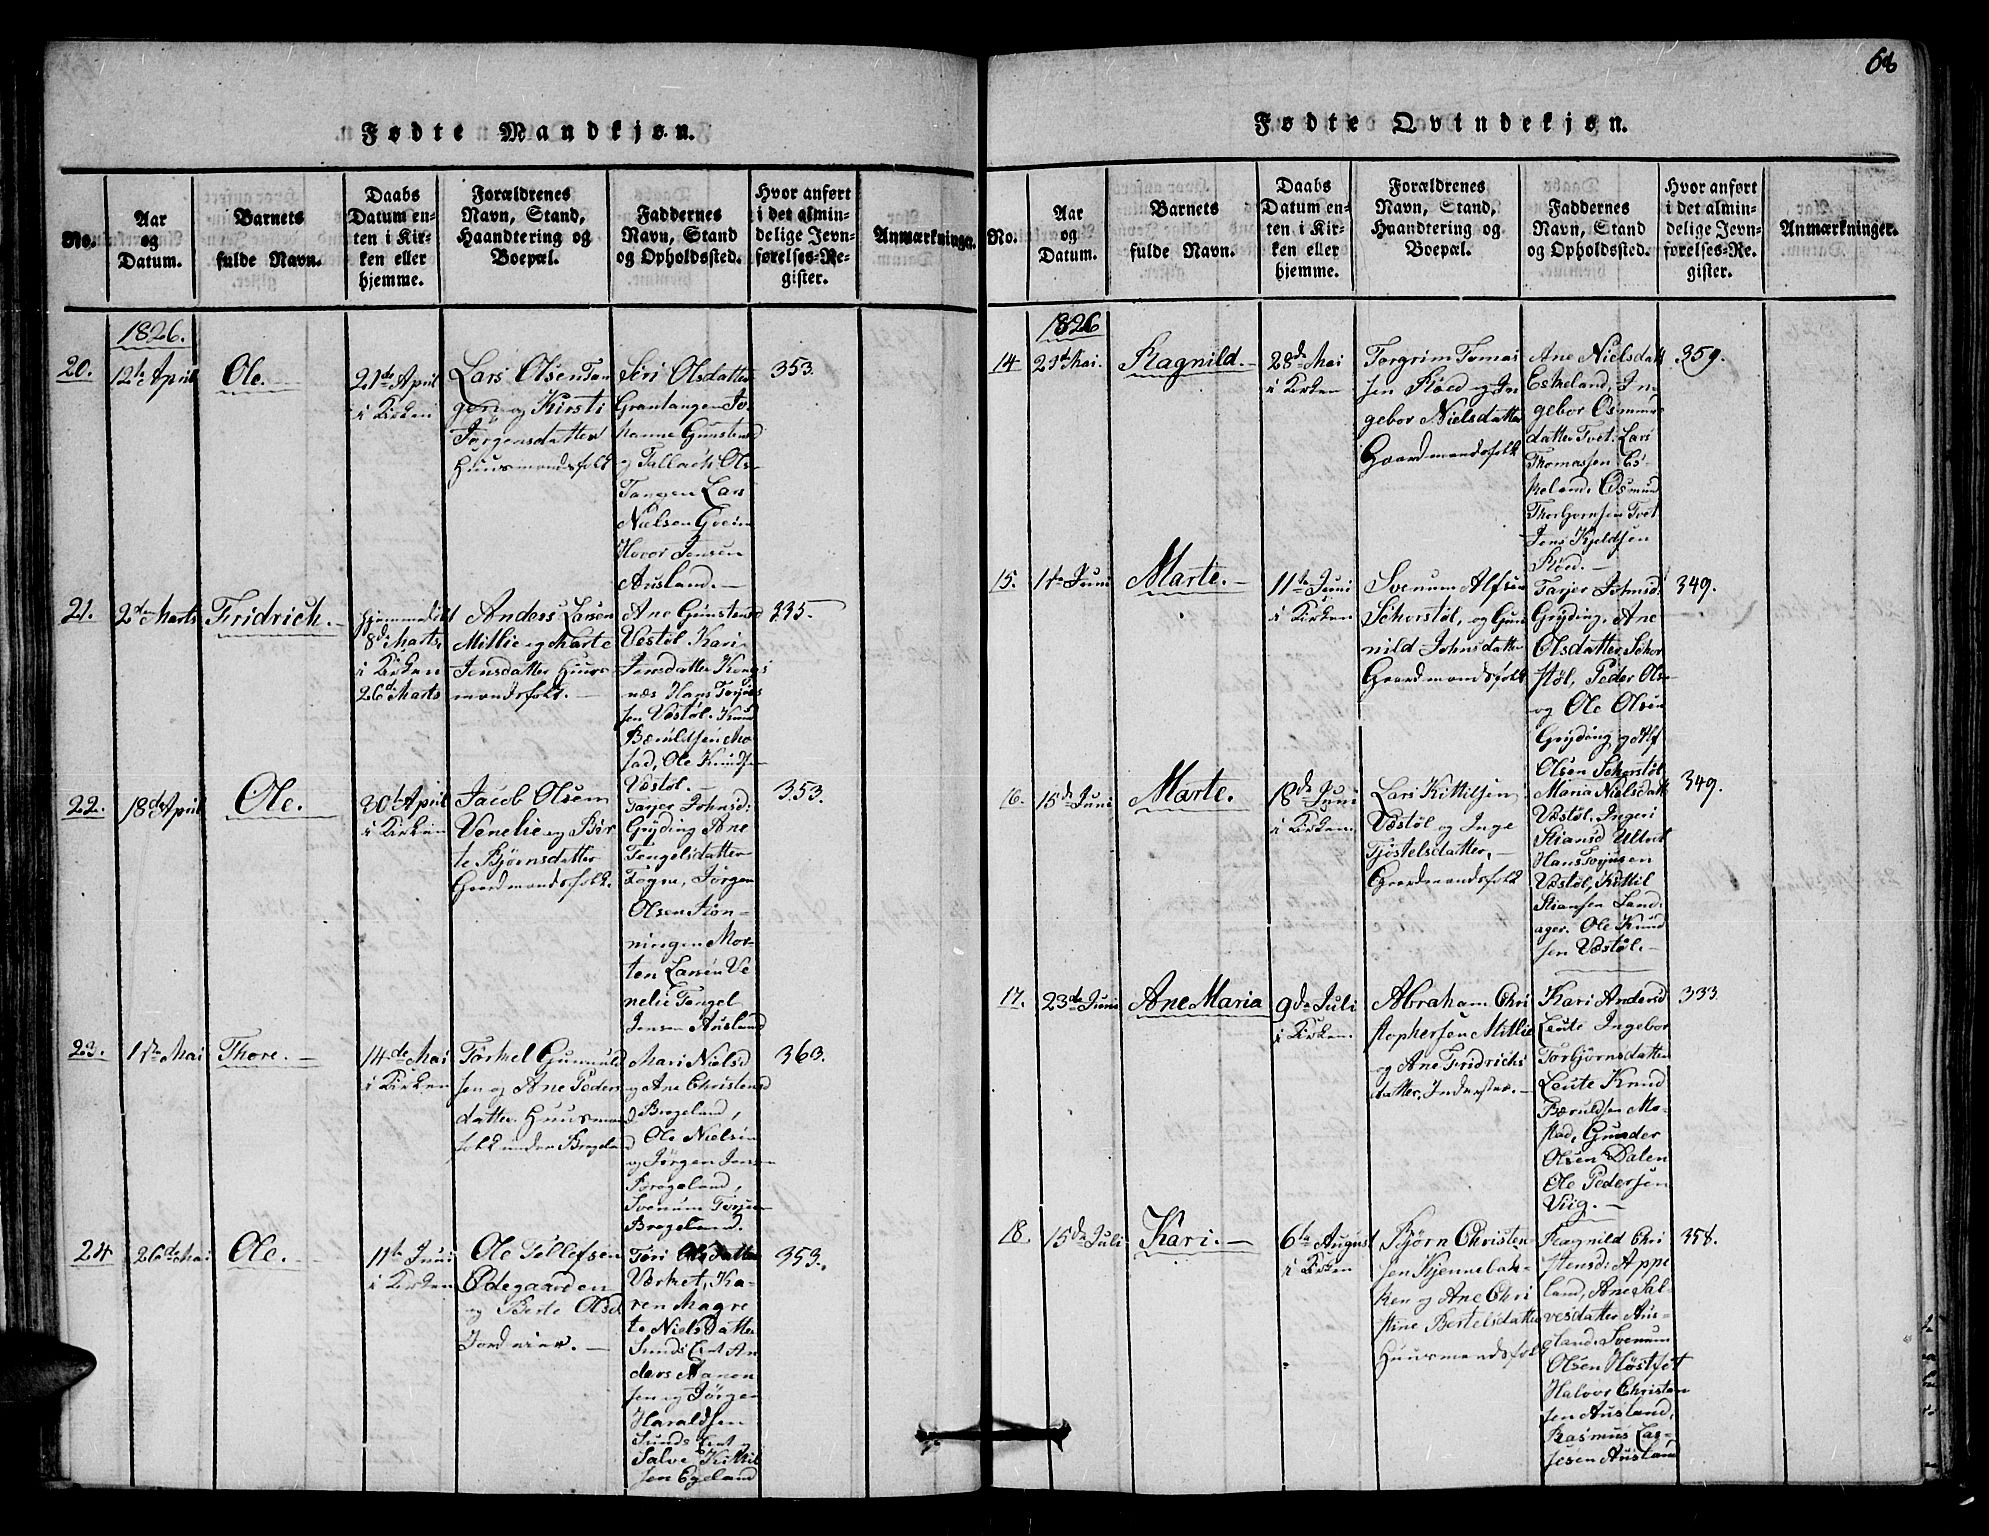 68
Fødte Mandkjøn.
No.
Aar
og
Datum.
Barnets
fulde Navn.
Daabs
Datum en-
ten i Kir-
ken eller
hjemme.
Forældrenes
Navn, Stand,
Haandtering og
Boepæl.
Faddernes
Navn, Stand
og Opholdssted.
Hvor anført
i det almin-
delige Jevn-
førelses-Re-
gister.
Anmærkninger.
1826.
20.
12te April
Ole.
21de April
i Kirken
Lars Olsen Tan
gen og Kirsti
Jørgensdatter
Huusmandsfolk
Siri Olsdatter
Grantangen Jo-
hanne Gunstensd
og Tallach Ols-
Tangen Lars
Nielsen Gveim
Hovor Jensen
Ausland.
353.
21.
2den Marts
Fridrich.
Hjemmedøbt
8de Marts,
i Kirken
26de Marts
Anders Larsen
Millie og Marte
Jensdatter Huus
mandsfolk.
Ane Gunstensd
Vestøl. Kari
Jensdatter Kongs
næs Hans Torjus
sen Vestøl. Knud
Bæruldsen Mo-
stad, Ole Knudsen
Vestøl.
335
22.
18de April
Ole.
30te April
i Kirken
Jacob Olsen
Venelie og Bir
te Bjørnsdatter
Gaardmandsfolk.
Tarjer Johnsd:
Gryding Ane
Tengelsdatter
Togne, Jørgen
Olsen Røn-
ningen Mor-
ten Larsen Ve
nelie Tengel
Jensen Ausland
353.
23.
1ste Mai
Thore.
14de Mai
i Kirken
Torkel Gunnuld
sen og Ane Peders
datter. Huusmand
folk under Brogeland
Mari Nielsd
og Ane Christensd
Brogeland,
Ole Nielsen
og Jørgen Jensen
Brogeland,
Svenum Torjusen
Brogeland.
363.
24
26de Mai
Ole.
11te Juni
i Kirken
Ole Tellefsen
Ødegaarden
og Berte Olsd
Jordeier.
Teri Olsdatter
Værket, Ka-
ren Magre
te Nielsdatter
Sunds Eiet An
ders Hansen
sen og Jørgen
Haraldsen
Sunds Eiet
Salve Kittil
sen Egeland
353.
Fødte Qvindekjøn.
No.
Aar
og
Datum.
Barnets
fulde Navn.
Daabs
Datum en-
ten i Kir-
ken eller
hjemme.
Forældrenes
Navn, Stand,
Haandtering og
Boepæl.
Faddernes
Navn, Stand
og Opholdssted.
Hvor anført
i det almin-
delige Jevn-
førelses-Re-
gister.
Anmærkninger.
1826
14
21de Mai.
Ragnild.
28de Mai
i Kirken
Torgrim Tomas
sen Røed og In
gebor Nielsdatter
Gaardmandsfolk
Ane Nielsdatt
Eskeland, In
gebor Osmunds
datter Tvet. Lars
Thomassen Es-
keland. Osmund
Thorbjørnsen Tvet
Jens Kjeldsen
Røed.
359.
15.
1ste Juni
Marte.
11te Juni
i Kirken
Svenum Alfsen
Skorstøl, og Gun
nild Johnsdatter
Gaardmandsfolk
Tarjer Johnsd:
Gryding. Ane
Olsdatter Skor
støl, Peder Ols-
og Ole Olsen
Gryding og Alf
Olsen Skorstøl
349.
16.
15de Juni
Marte.
18de Juni
i Kirken.
Lars Kittilsen
Vestøl og Inge
Tjøstelsdatter,
Gaardmandsfolk
Maria Nielsdatt
Vestøl. Ingeri
Stiansd Ulltvet
Hans Torjusen
Vestøl, Kittil
Stiansen Land-
ager. Ole Knud
sen Vestøl.
349.
17.
23de Juni
Ane Maria
9de Juli
i Kirken.
Abraham Chri
stophersen Mitlie
og Ane Fridrichs
datter, Inderster.
Kari Andersd
Leute Ingebor
Torbjørnsdatter
Leute Knud
Bæruldsen Mo-
stad, Gunder
Olsen Dalen
Ole Pedersen
Viig.
333.
18.
15de Juli
Kari.
6te August
i Kirken
Bjørn Christen
sen Kjennebak-
ken og Ane Chri
stine Bertelsdatter
Huusmandsfolk
Ragnild Chri
stensd: Appe
land, Ane Sal-
vesdatter Aus-
land. Svenum
Olsen Høstfot
Halvor Christen
sen Ausland,
Rasmus Las-
sesen Ausland
358.